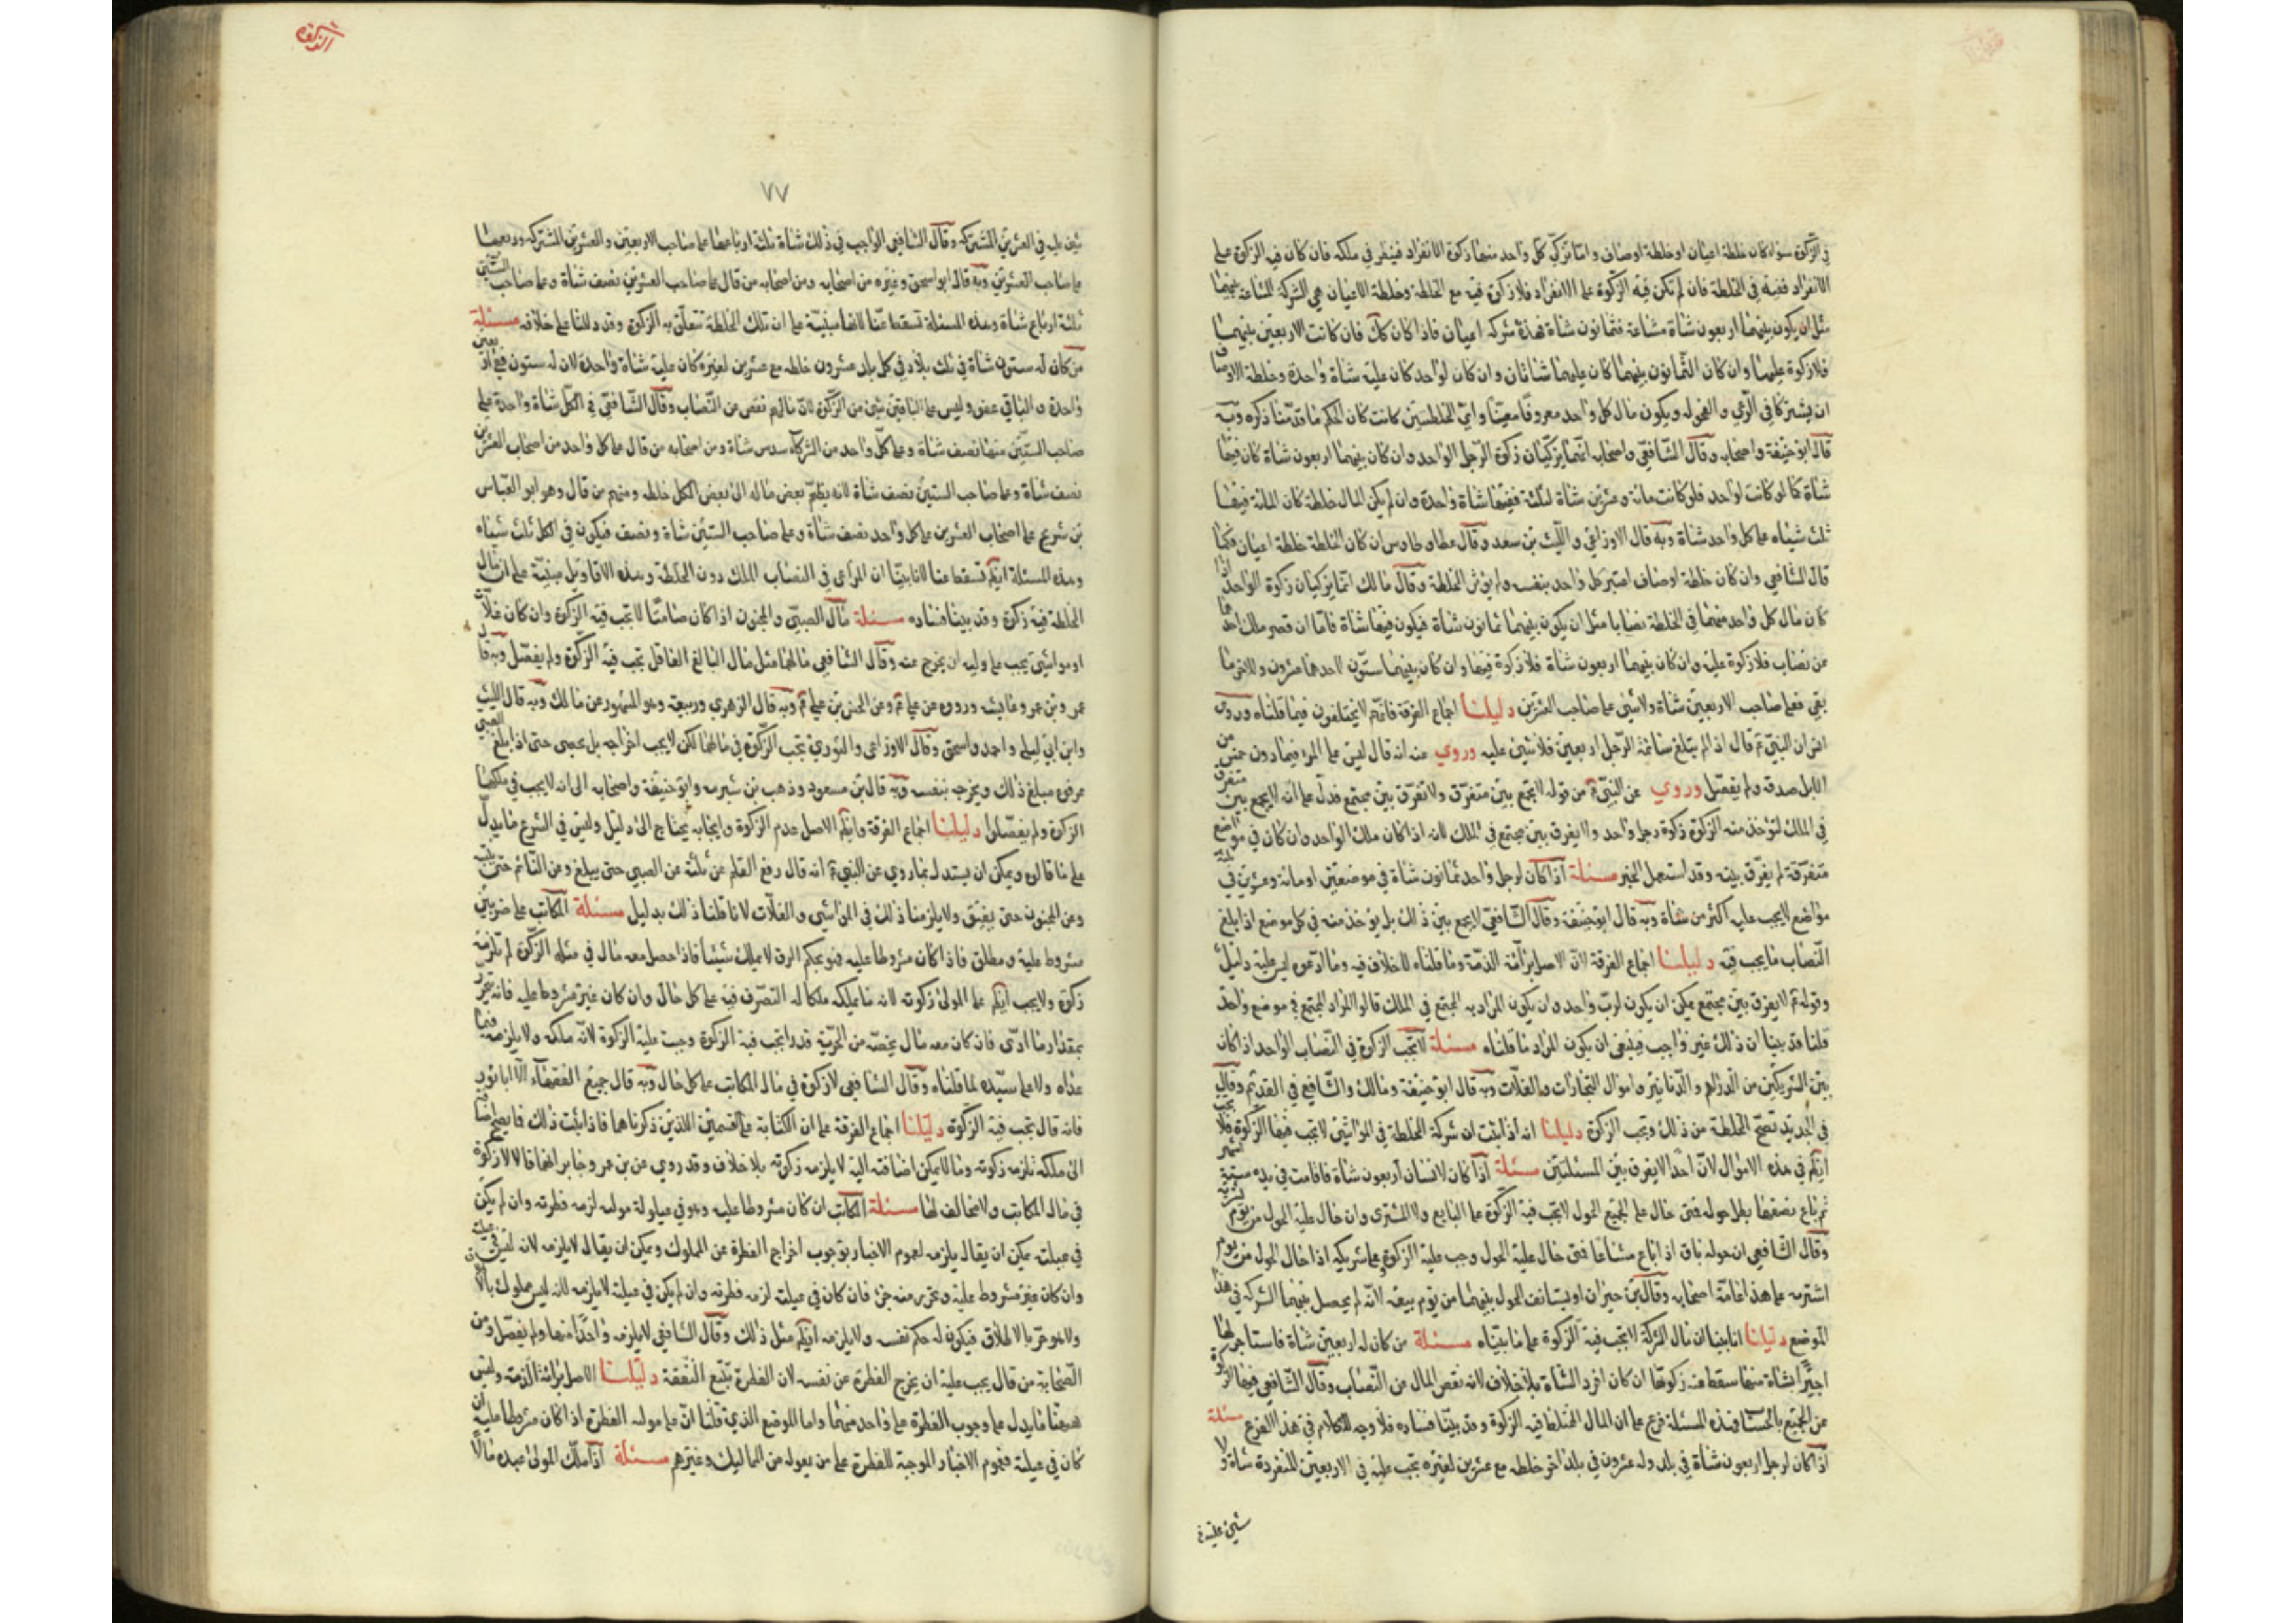 في الزكوة سواء كان خلطة اعيان او خلطة اوصاف وانما يزكي كل واحد منهما زكوة الانفراد فينظر في ملكه فان كان فيه الزكوة على
الانفراد ففيه في الخلطة فان لم تكن فيه الزكوة على الانفراد فلا زكوة فيه مع الخلطة وخلطة الاعيان هي الشركة المشاعة بينهما
مثل ان يكون بينهما اربعون شاة مشاعة فثمانون شاة فهذه شركه اعيان فاذا كان كك فان كانت الاربعين بينهما
فلا زكوة عليهما وان كان الثمانون بينهما كان عليهما شاتان وان كان لواحد كان عليه شاة واحدة وخلطة الاوصاف
ان يشتركا في الرعي و الفحوله ويكون مال كل واحد معروفا معينا واي الخلطتين كانت كان الحكم ما قدمنا ذكره وبه
قال ابو حنيفة واصحابه وقال الشافعي واصحابه انهما يزكيان زكوة الرجل الواحد وان كان بينهما اربعون شاة كان فيها
شاة كما لو كانت لواحد فلو كانت مائة وعشرين شاة لثلثة ففيها شاة واحدة وان لم يكن المال خلطة كان المائة فيها
ثلث شياه على كل واحد شاة وبه قال الاوزاعي و الليث بن سعد وقال عطاو طاوس ان كان الخلطة خلطة اعيان فكما
قال الشافعي وان كان خلطة اوصاف اعتبر كل واحد بنفسه ولم يؤثر الخلطة وقال مالك انما يزكيان زكوة الواحد اذا
كان مال كل واحد منهما في الخلطة نصابا مثل ان يكون بينهما ثمانون شاة فيكون فيها شاة فاما ان قصر ملك احدهما
عن نصاب فلا زكوة عليه وان كان بينهما اربعون شاة فلا زكوة فيها وان كان بينهما ستون لاحدهما عشرون وللاخر ما
بقي فعلى صاحب الاربعين شاة ولا شئ على صاحب العشرين دليلنا اجماع الفرقة فانهم لا يختلفون فيما قلناه وروى
انس ان النبي ؐ قال اذا لم يبلغ سائمة الرجل اربعين فلا شئ عليه وروي عنه انه قال ليس على المرء فيما دون خمس من
الابل صدقة ولم يفصل وروي عن النبي ؐ من قوله لا يجمع بين متفرق ولا تفرق بين مجتمع فدل على انه لا يجمع بين متفرق
في الملك لتؤخذ منه الزكوة زكوة رجل واحد ولا يفرق بين مجتمع في الملك لانه اذا كان ملك الواحد وان كان في مواضع
متفرقة لم يفرق بينه وقد استعمل الخبر مسئلة اذا كان لرجل واحد ثمانون شاة في موضعين او مائة وعشرين في ثلثة
مواضع لا يجب عليه اكثر من شاة وبه قال ابو حنيفة وقال الشافعي لا يجمع بين ذلك بل يؤخذ منه في كل موضع اذا بلغ
النصاب ما يجب فيه دليلنا اجماع الفرقة لان الاصل براءة الذمة وما قلناه لا خلاف فيه وما ادعوه ليس عليه دليل
وقوله ؐ لا يفرق بين مجتمع يمكن ان يكون لرب واحد وان يكون المراد به المجتمع في الملك قالوا المراد المجتمع في موضع واحد
قلنا قد بينا ان ذلك غير واجب فينبغي ان يكون المراد ما قلناه مسئلة لا تجب الزكوة في النصاب الواحد اذا كان
بين الشريكين من الدراهم و الدنانير واموال التجارات و الغلات وبه قال ابو حنيفة ومالك والشافعي في القديم وقال
في الجديد تصح الخلطة من ذلك وتجب الزكوة دليلنا انه اذا ثبت ان شركة الخلطة في المواشي لا تجب فيها الزكوة فلا تجب
ايضا في هذه الاموال لان احدا لا يفرق بين المسئلتين مسئلة اذا كان لانسان اربعون شاة فاقامت في يده ستة اشهر
ثم باع نصفها بطل حوله فمتى حال على الجميع الحول لا تجب فيه الزكوة على البايع ولا المشترى وان حال عليه الحول من يوم شريه
وقال الشافعي ان حوله باق اذا باع مشاعا فمتى حال عليه الحول وجب عليه الزكوة وعلى شريكه اذا حال الحول من يوم
اشتريه على هذا عامة اصحابه وقال بن خيران او يستانف الحول بينهما من يوم بيعه لانه لم يحصل بينهما الشركه في هذا
الموضع دليلنا انا بينا ان مال الشركة لا تجب فيه الزكوة على ما بيناه مسئلة من كان له اربعين شاة فاستاجر لها
اجيرا بشاة منها سقط عنه زكوتها ان كان افرد الشاة بلا خلاف لانه نقص المال من النصاب وقال الشافعي فيها الزكوة
عن الجميع بالحساب فهذه المسئلة فرع على ان المال المختلط فيه الزكوة وقد بينا فساده فلا وجه للكلام في هذا الفرع مسئلة
اذا كان لرجل اربعون شاة في بلد وله عشرون في بلد اخر خلطه مع عشرين لغيره يجب عليه في الاربعين المنفردة شاة ولا
شئ عليه في
٧٧
شئ عليه في العشرين المشتركه وقال الشافعي الواجب في ذلك شاة ثلثة ارباعها على صاحب الاربعين و العشرين المشتركه وربعها
على صاحب العشرين وبه قال ابو اسحق وغيره من اصحابه ومن اصحابه من قال على صاحب العشرين نصف شاة وعلى صاحب الستين
ثلثة ارباع شاة وهذه المسئلة تسقط عنا لانها مبنية على ان تلك الخلطة تتعلق به الزكوة وقد دللنا على خلافه مسئلة
من كان له ستون شاة في ثلث بلاد في كل بلد عشرون خلطه مع عشرين لغيره كان عليه شاة واحدة لان له ستون ففي اربعين
واحدة و الباقي عفو وليس على الباقين شئ من الزكوة لان مالهم نقص عن النصاب وقال الشافعي في الكل شاة واحدة على
صاحب الستين منها نصف شاة وعلى كل واحد من الشركاء سدس شاة ومن اصحابه من قال على كل واحد من اصحاب العشرين
نصف شاة وعلى صاحب الستين نصف شاة لانه يضم بعض ماله الى بعض الكل خلطه ومنهم من قال وهو ابو العباس
بن شريح على اصحاب العشرين على كل واحد نصف شاة وعلى صاحب الستين شاة ونصف فيكون في الكل ثلث شياه
وهذه المسئلة ايضا تسقط عنا لانا بينا ان المراعى في النصاب الملك دون الخلطة وهذه الاقاويل مبنية على ان مال
الخلطة فيه زكوة وقد بينا فساده مسئلة مال الصبي و المجنون اذا كان صامتا لا تجب فيه الزكوة وان كان غلات
او مواشي يجب على وليه ان يخرج عنه وقال الشافعي مالهما مثل مال البالغ العاقل تجب فيه الزكوة ولم يفصل وبه قال
عمر وبن عمر وعايشه ورووه عن علي ؑ وعن الحسن بن علي ؑ وبه قال الزهري وربيعة وهو المشهور عن مالك وبه قال الليث
وابن ابي ليلى واحمد واسحق وقال الاوزاعى و الثوري تجب الزكوة في مالهما لكن لا يجب اخراجه بل يحصى حتى اذا بلغ الصبي
عرفوه مبلغ ذلك ويخرجه بنفسه وبه قال بن مسعود وذهب بن شبرمه وابو حنيفة واصحابه الى انه لا يجب في ملكهما
الزكوة ولم يفصلوا دليلنا اجماع الفرقة وايضا الاصل عدم الزكوة وايجابه يحتاج الى دليل وليس في الشرع ما يدل
على ما قالوه ويمكن ان يستدل بما روي عن النبي ؐ انه قال رفع القلم عن ثلثة عن الصبي حتى يبلغ وعن النائم حتى ينتبه
وعن المجنون حتى يفيق ولا يلزمنا ذلك في المواشي و الغلات لانا قلنا ذلك بدليل مسئلة المكاتب على ضربين
مشروط عليه و مطلق فاذا كان مشروطا عليه فهو بحكم الرق لا يملك شيئا فاذا حصل معه مال في مثله الزكوة لم تلزمه
زكوة ولا يجب ايضا على المولى زكوته لانه ما يملكه ملكا له التصرف فيه على كل حال وان كان غير مشروط عليه فانه يتحرر
بمقدار ما ادى فان كان معه مال يخصه من الحرية قدر ما تجب فيه الزكوة وجبت عليه الزكوة لانه ملكه ولا يلزمه فيما
عداه ولا على سيده لما قلناه وقال الشافعي لا زكوة في مال المكاتب على كل حال وبه قال جميع الفقهاء الا ابا ثور
فانه قال تجب فيه الزكوة دليلنا اجماع الفرقة على ان الكتابة على القسمين اللذين ذكرناهما فاذا ثبت ذلك فما يصح اضافته
الى ملكه تلزمه زكوته وما لا يمكن اضافته اليه لا يلزمه زكوته بلا خلاف وقد روي عن بن عمر وجابر انهما قالا لا زكوة
في مال المكاتب ولا مخالف لهما مسئلة المكاتب ان كان مشروطا عليه وهو في عيلولة مولاه لزمه فطرته وان لم يكن
في عيلته يمكن ان يقال يلزمه لعموم الاخبار بوجوب اخراج الفطرة عن المملوك ويمكن ان يقال لا يلزمه لانه ليس في عيلته
وان كان غير مشروط عليه وتحرر منه جزء فان كان في عيلته لزمه فطرته وان لم يكن في عيلته لا يلزمه لانه ليس مملوك بالاطلاق
ولا هو حر بالاطلاق فيكون له حكم نفسه ولا يلزمه ايضا مثل ذلك وقال الشافعي لا يلزمه واحدا منهما ولم يفصل ومن
اصحابه من قال يجب عليه ان يخرج الفطرة عن نفسه لان الفطرة تتبع النفقة دليلنا الاصل براءة الذمة وليس
ههنا ما يدل على وجوب الفطرة على واحد منهما واما الموضع الذي قلنا ان على مولاه الفطرة اذا كان مشروطا عليه او
كان في عيلته فعموم الاخبار الموجبة للفطرة على من يعوله من المماليك وغيرهم مسئلة اذا ملك المولى عبده مالا